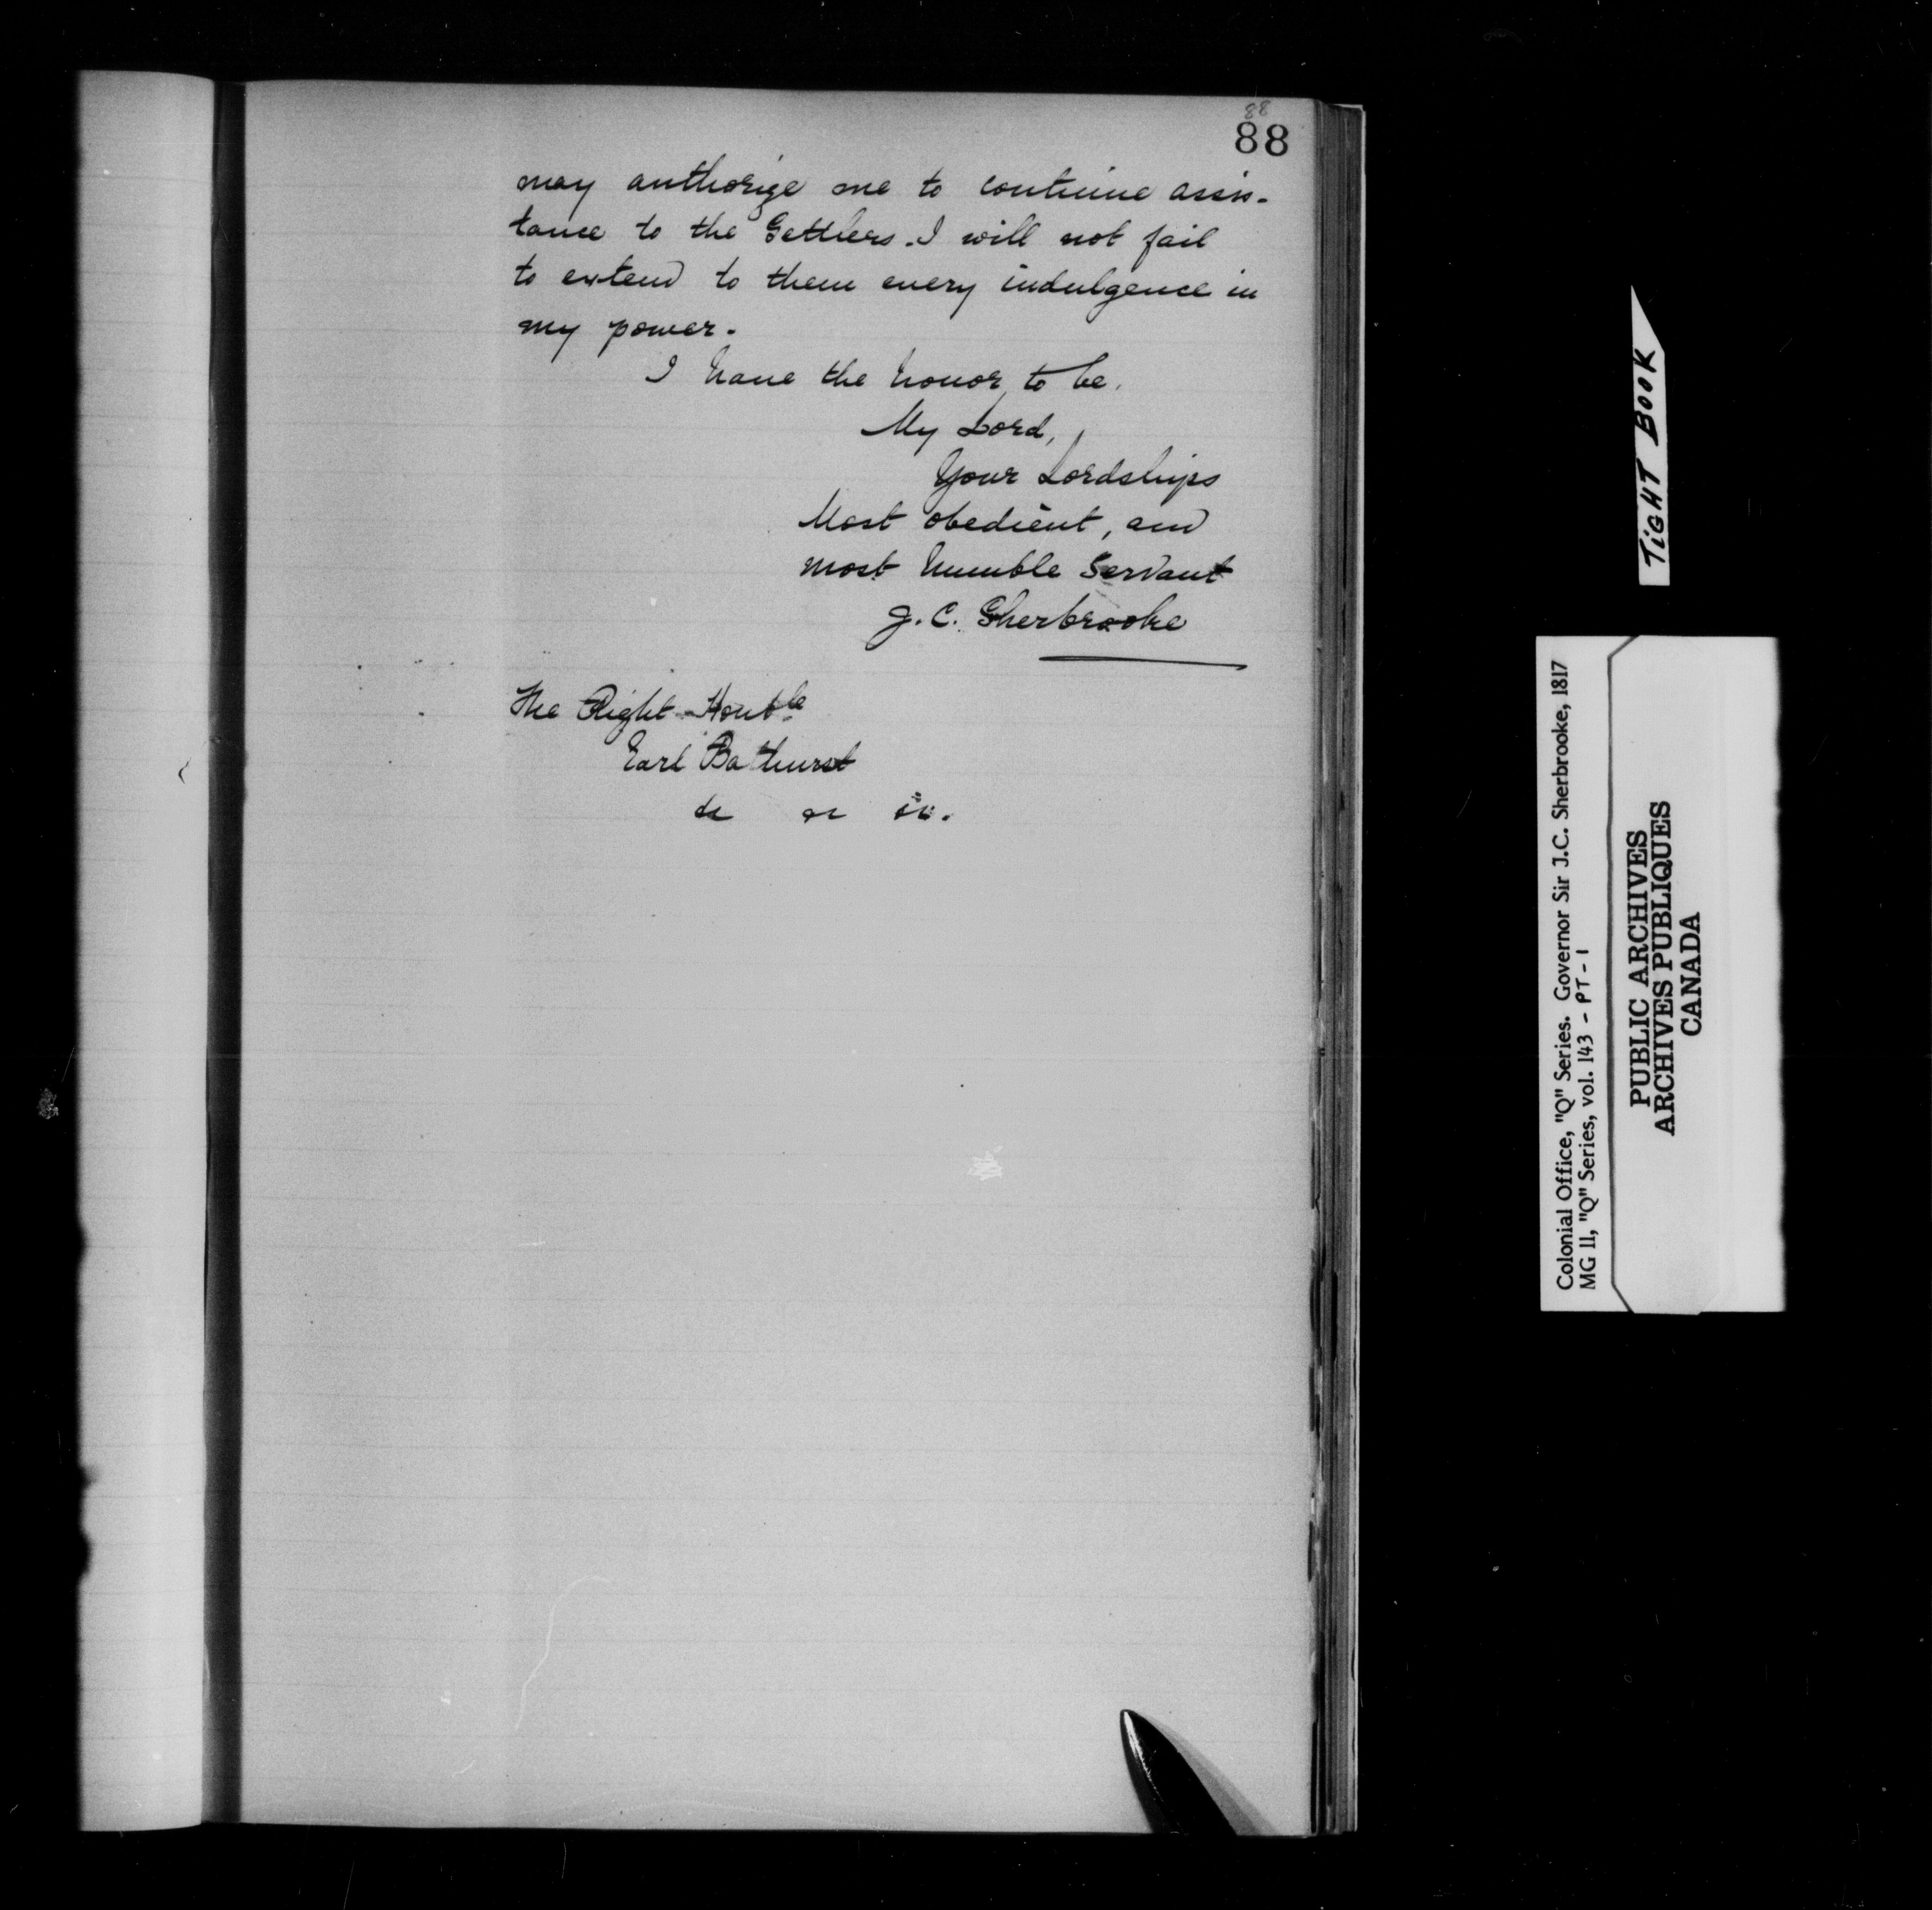 88
88
may authorize me to continue assis-
tance to the Settlers. I will not fail
to extend to them every indulgence in
my power.
I have the honor to be,
My Lord,
Your Lordships
Most obedient, and
most humble Servant
J. C. Sherbrooke
The Right Honble
Earl Bathurst
&c &c &c.
TIGHT BOOK
Colonial Office, "Q" Series. Governor Sir J.C. Sherbrooke, 1817
MG 11, "Q" Series, vol. 143 - PT-1
PUBLIC ARCHIVES
ARCHIVES PUBLIQUES
CANADA